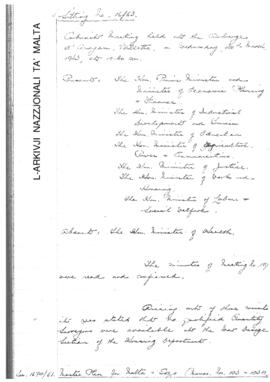 L-ARKIVJI NAZZJONALI TA' MALTA
Sitting No. 16/63.
Cabinet Meeting held at the Auberge
d'Aragon, Valletta, on Wednesday, 20th March
1963, at 9.
Present: The Hon. Prime Minister and
Minister of Economic Planning
& Finance.
The Hon. Minister of Industrial
Development and Tourism
The Hon. Minister of Education
The Hon. Minister of Agriculture,
Power & Communications.
The Hon. Minister of Justice.
The Hon. Minister of Works and
Housing.
The Hon. Minister of Labour &
Social Welfare.
Absent: The Hon. Minister of Health.
The minutes of Meeting No.
were read and confirmed.
Arising out of these minutes
it was stated that no qualified Quantity
Surveyors were available at the
Section of the Housing Department.
Master Plan for Malta -